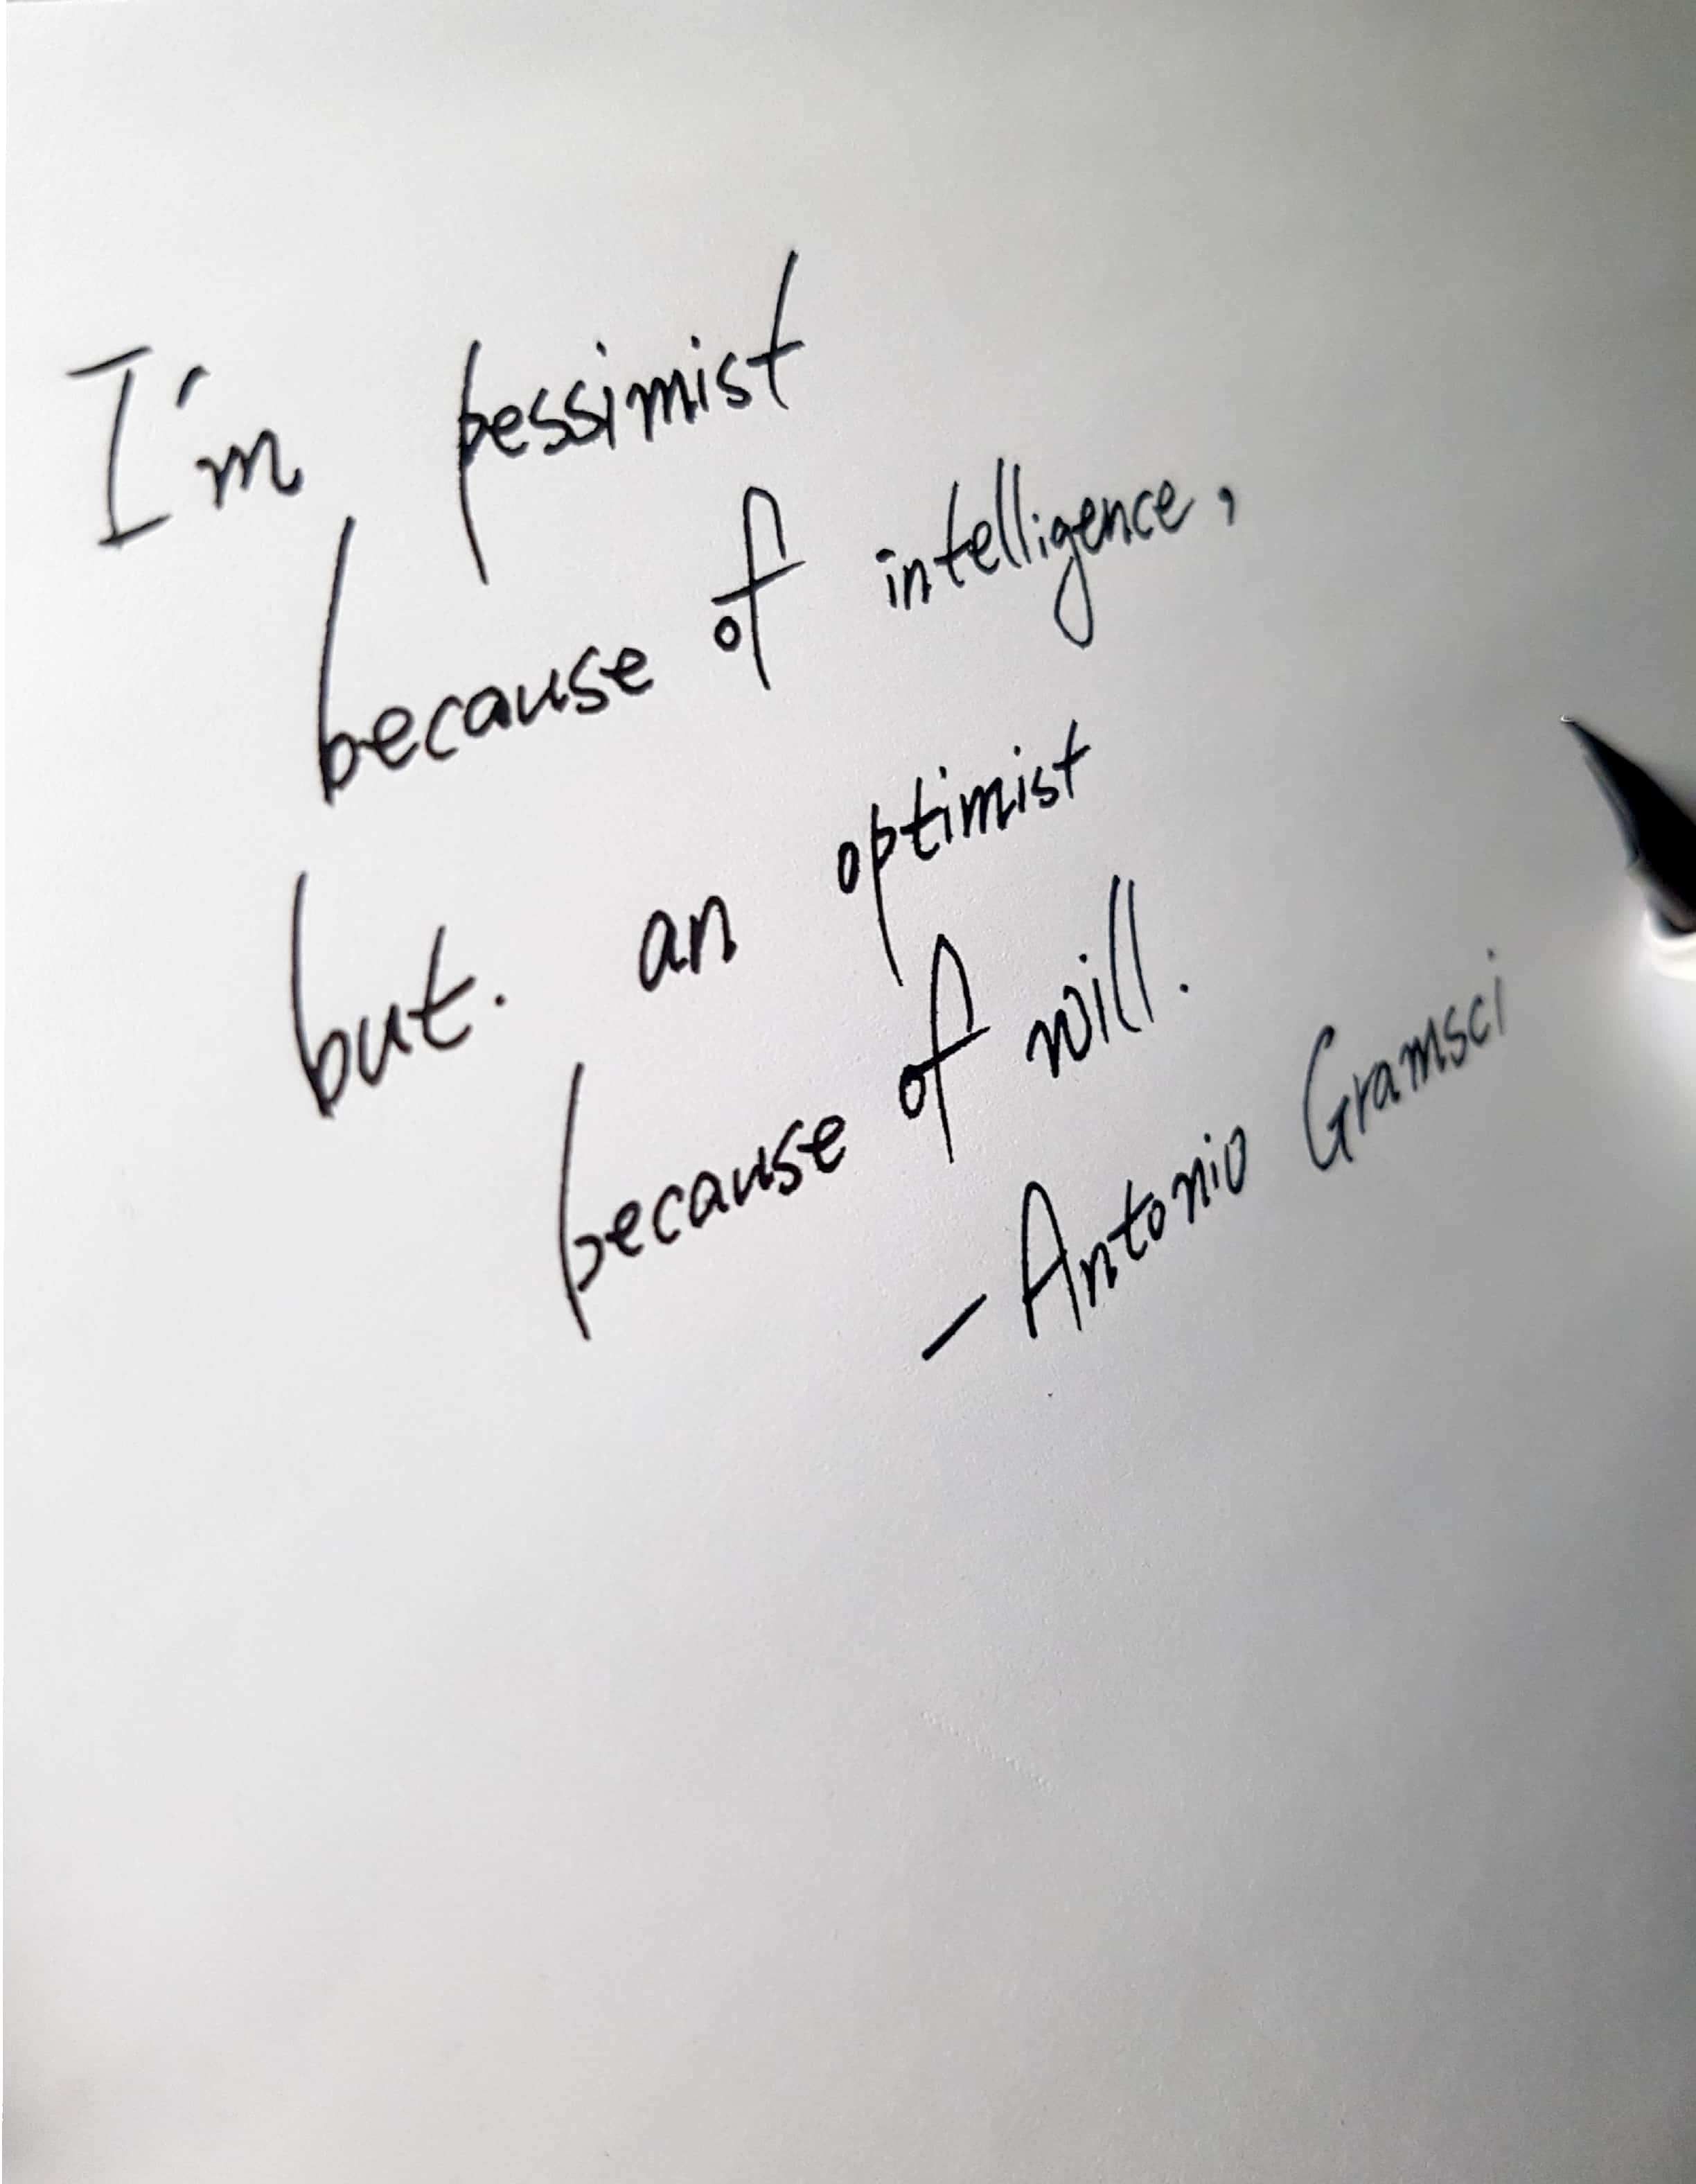 I'm pessimist
because of intelligence,
but. an optimist
because of will.
- Antonio Gramsci